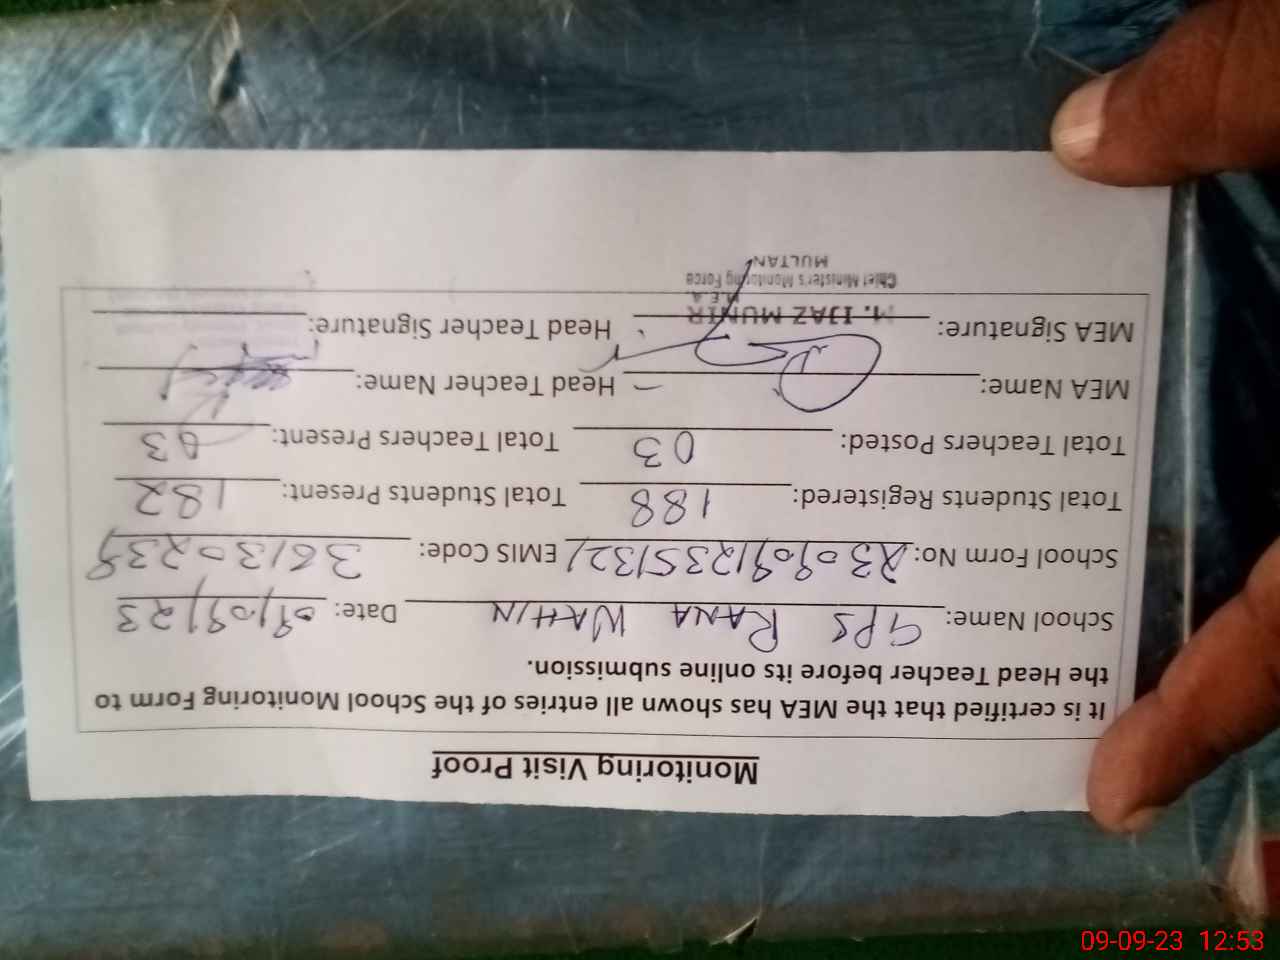 Monitoring Visit Proof
It is certified that the MEA has shown all entries of the School Monitoring Form to
the Head Teacher before its online submission.
School Name: GPS RANA WAHIN Date: 09/09/23
School Form No: EMIS Code: 36130239
Total Students Registered: 188 Total Students Present: 182
Total Teachers Posted: 03 Total Teachers Present: 03
MEA Name: Head Teacher Name:
MEA Signature: Head Teacher Signature:
M. IJAZ MUNIR
M.E.A.
Chief Minister's Monitoring Force
MULTAN
09-09-23 12:53